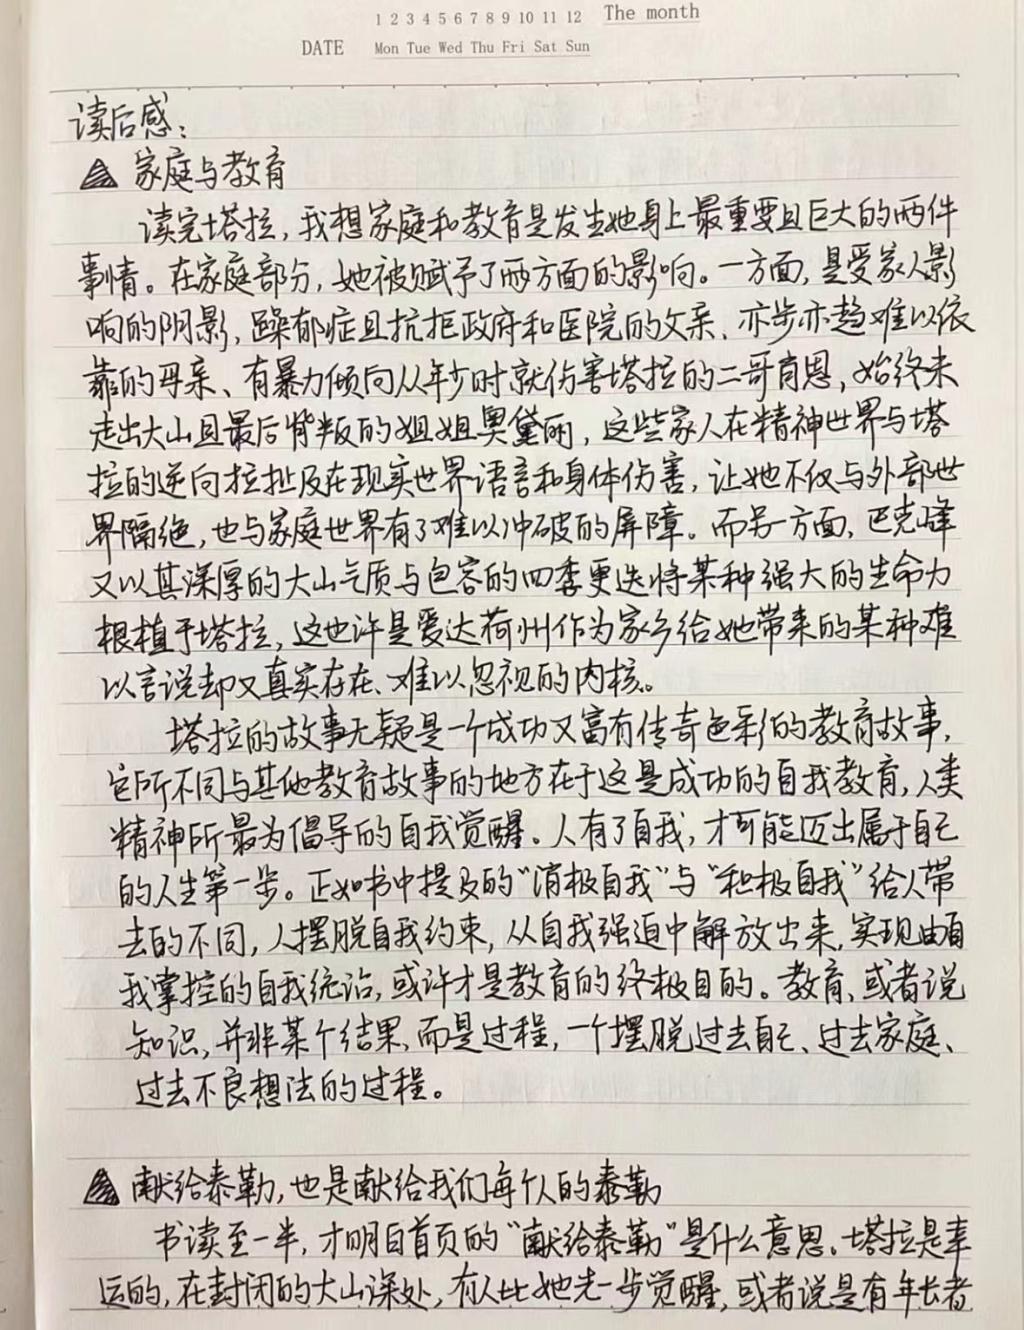 1 2 3 4 5 6 7 8 9 10 11 12 The month
DATE Mon Tue Wed Thu Fri Sat Sun
读后感：
家庭与教育
读完塔拉，我想家庭和教育是发生她身上最重要且巨大的两件
事情。在家庭部分，她被赋予了两方面的影响。一方面，是受家人影
响的阴影，躁郁症且抗拒政府和医院的父亲、亦步亦趋难以依
靠的母亲、有暴力倾向从年少时就伤害塔拉的二哥肖恩，始终未
走出大山且最后背叛的姐姐奥黛丽，这些家人在精神世界与塔
拉的逆向拉扯及在现实世界语言和身体伤害，让她不仅与外部世
界隔绝，也与家庭世界有了难以冲破的屏障。而另一方面，巴克峰
又以其深厚的大山气质与包容的四季更迭将某种强大的生命力
根植于塔拉，这也许是爱达荷州作为家乡给她带来的某种难
以言说却又真实存在、难以忽视的内核。
塔拉的故事无疑是一个成功又富有传奇色彩的教育故事，
它所不同与其他教育故事的地方在于这是成功的自我教育，人类
精神所最为倡导的自我觉醒。人有了自我，才可能迈出属于自己
的人生第一步。正如书中提及的“消极自我”与“积极自我”给人带
去的不同，人摆脱自我约束，从自我强迫中解放出来，实现由自
我掌控的自我统治，或许才是教育的终极目的。教育、或者说
知识，并非某个结果，而是过程，一个摆脱过去自己、过去家庭、
过去不良想法的过程。
献给泰勒，也是献给我们每个人的泰勒
书读至一半，才明白首页的“献给泰勒”是什么意思。塔拉是幸
运的，在封闭的大山深处，有人比她先一步觉醒，或者说是有年长者